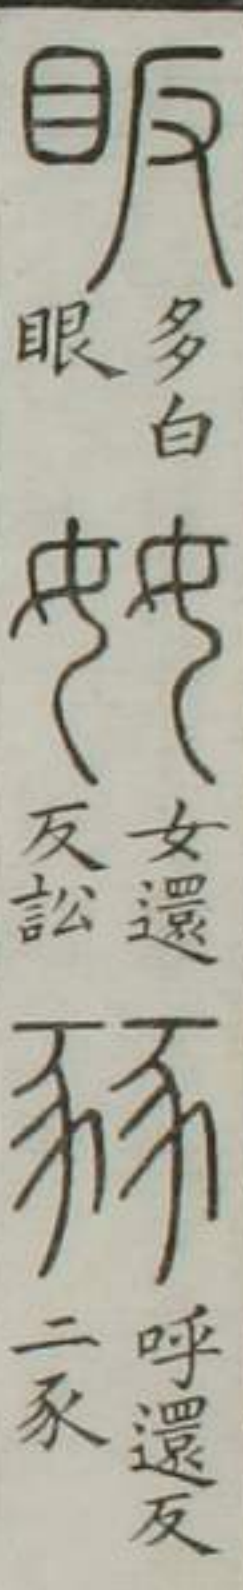 眅
多白
眼
奻
女還
反訟
豩
呼還反
二豕